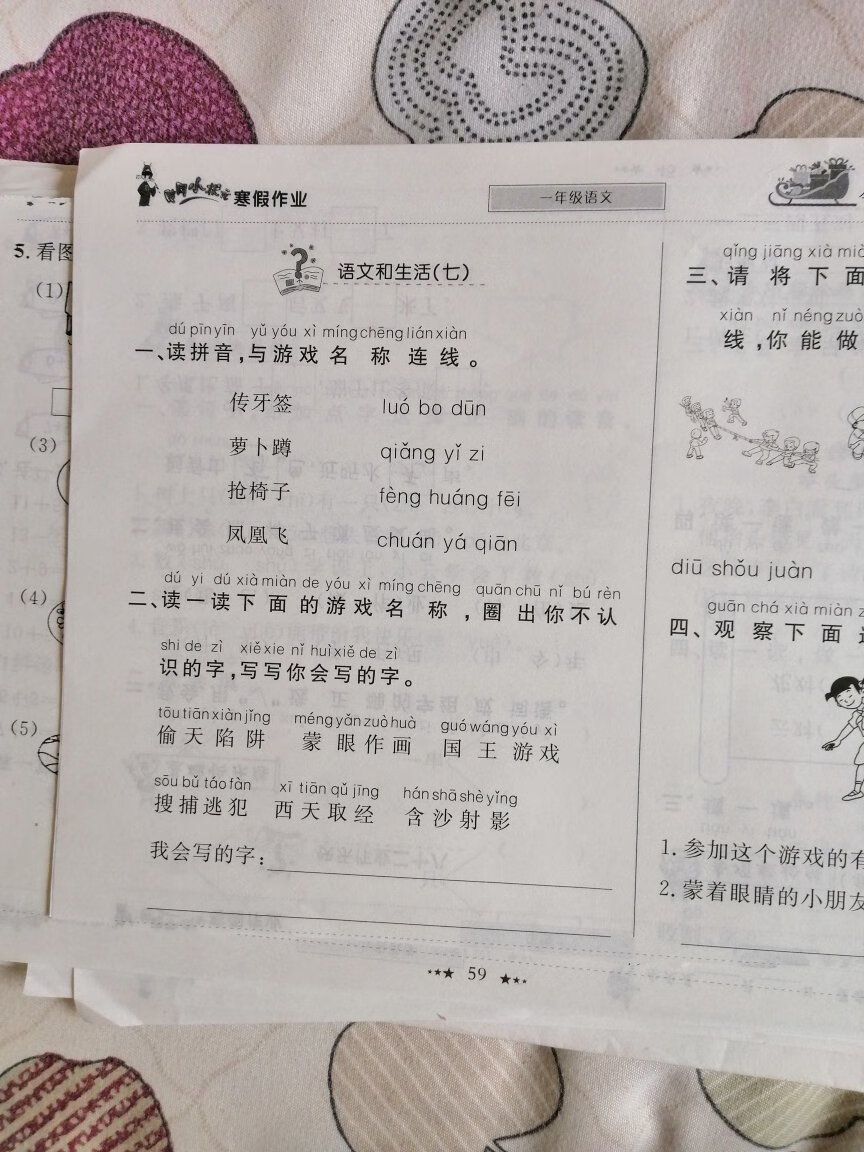 寒假作业
一年级语文
5.看图
(1)
(3)
(4)
(5)
语文和生活(七)
dú pīn yīn yǔ yóu xì míng chēng lián xiàn
一、读拼音,与游戏名称连线。
传牙签 luó bo dūn
萝卜蹲 qiǎng yǐ zi
抢椅子 fèng huáng fēi
凤凰飞 chuán yá qiān
dú yi dú xià miàn de yóu xì míng chēng quān chū nǐ bú rèn
二、读一读下面的游戏名称,圈出你不认
shi de zì xiě xie nǐ huì xiě de zì
识的字,写写你会写的字。
tōu tiān xiàn jǐng méng yǎn zuò huà guó wáng yóu xì
偷天陷阱 蒙眼作画 国王游戏
sōu bǔ táo fàn xī tiān qǔ jīng hán shā shè yǐng
搜捕逃犯 西天取经 含沙射影
我会写的字:
qǐng jiāng xià
三、请将下面
xiàn nǐ néng zuò
线,你能做
diū shǒu juàn
guān chá xià miàn
四、观察下面
1.参加这个游戏的有
2.蒙着眼睛的小朋友
59